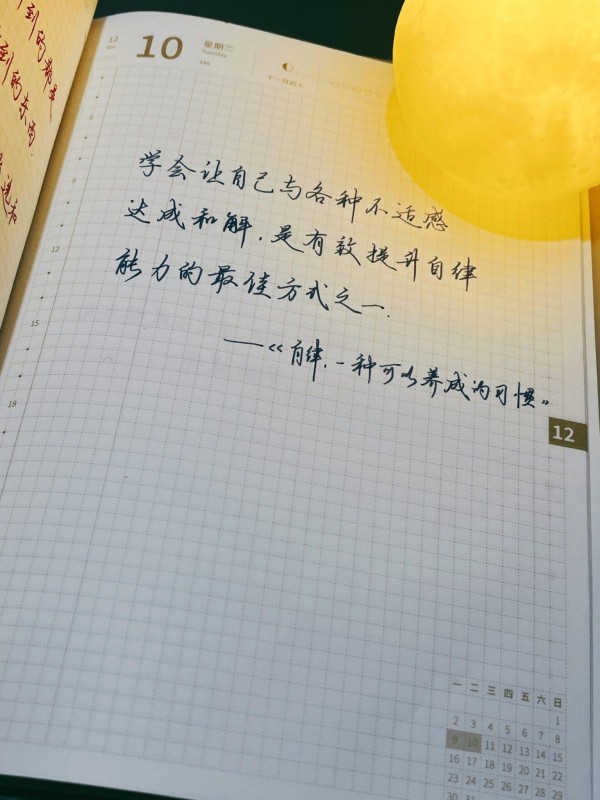 到的都是
到的东西.
12
Dec
10
星期二
Tuesday
十一月初十
学会让自己与各种不适感
达成和解,是有效提升自律
能力的最佳方式之一.
——《自律,一种可以养成的习惯》
12
15
18
12
一 二 三 四 五 六 日
1
2 3 4 5 6 7 8
9 10 11 12 13 14 15
16 17 18 19 20 21 22
23 24 25 26 27 28 29
30 31